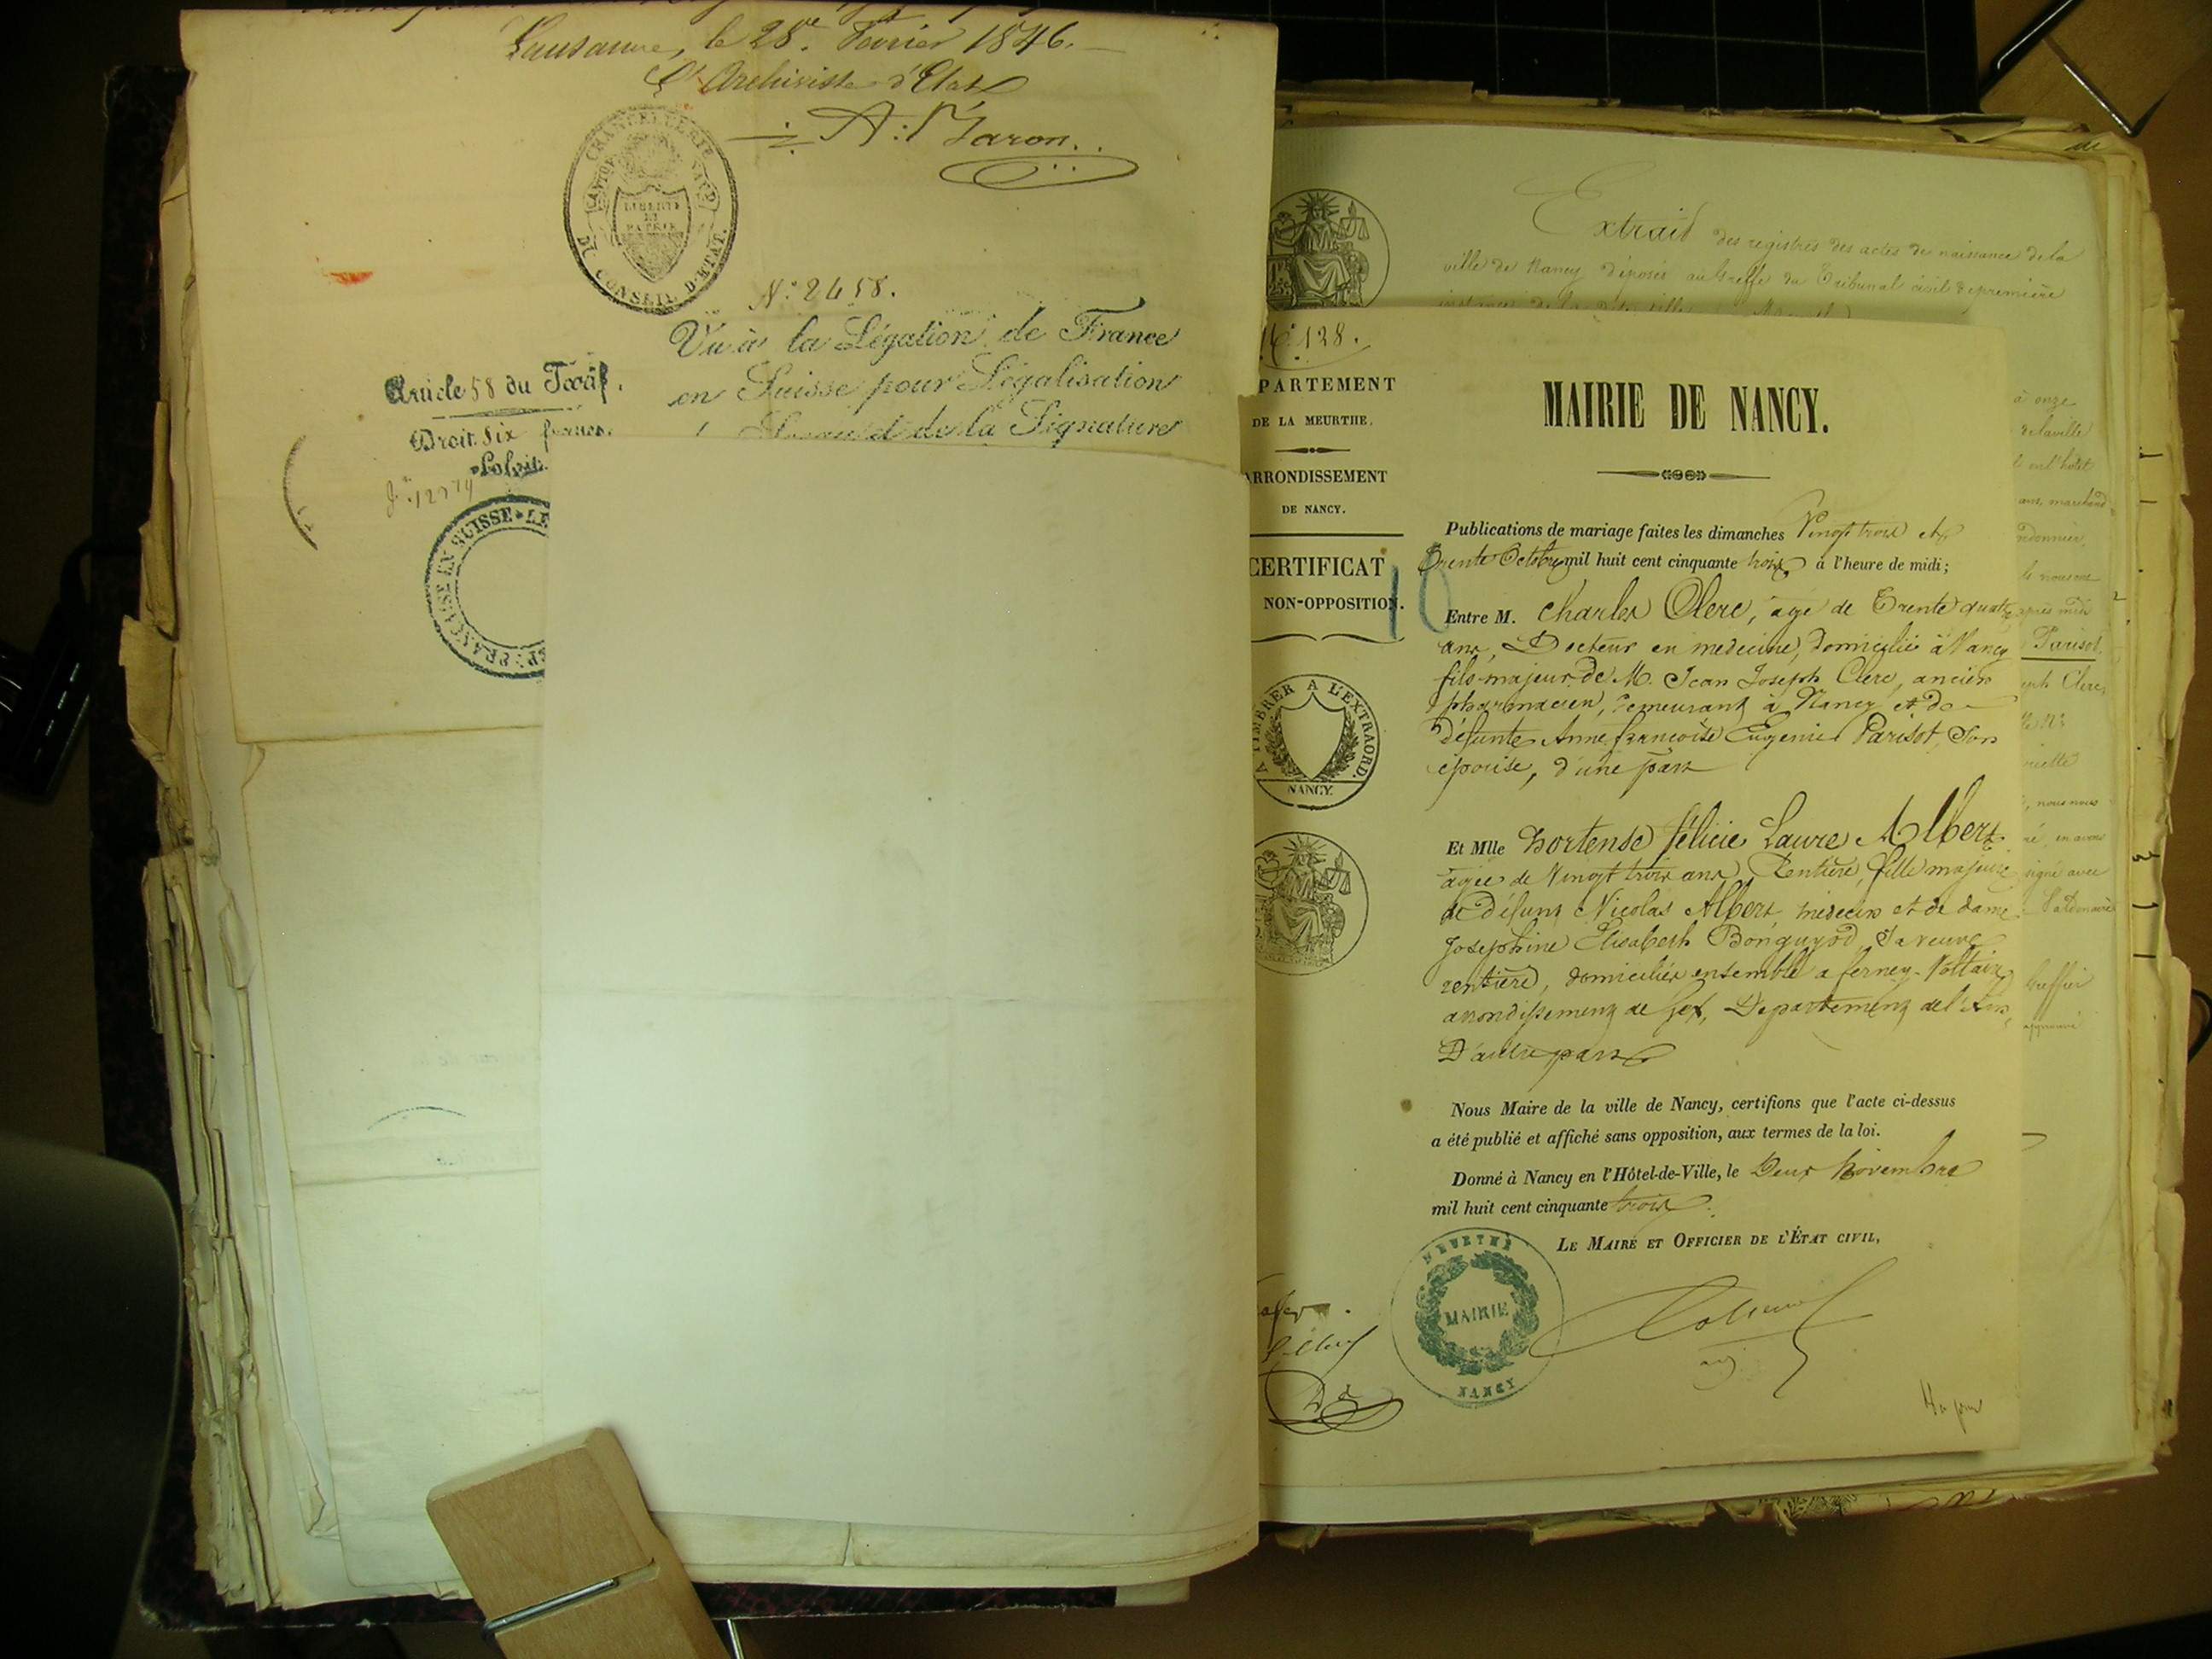 Lausanne, le 28e. Février 1846.
L'Archiviste d'Etat
A: Baron.
CHANCELLERIE
CANTON VAUD
LIBERTÉ
ET
PATRIE
DU CONSEIL D'ETAT.
N.° 2458.
Vu à la Légation de France
en Suisse pour Légalisation
de la Signature
Article 58 du Tarif.
Droit six francs.
FRANÇAISE EN SUISSE
Extrait des registres des actes de naissance de la
ville de Nancy déposés au Greffe du Tribunal civil de première
N.° 128.
PARTEMENT
DE LA MEURTHE.
ARRONDISSEMENT
DE NANCY.
CERTIFICAT
NON-OPPOSITION.
10
A TIMBRER A L'EXTRAORD.
NANCY.
MAIRIE DE NANCY.
Publications de mariage faites les dimanches Vingt trois et
Trente Octobre mil huit cent cinquante trois à l'heure de midi;
Entre M. Charles Clerc, âgé de Trente quatre
ans, Docteur en medecine, domicilié à Nancy
fils majeur de M. Jean Joseph Clerc, ancien
pharmacien, demeurant à Nancy et de
défunte Anne françoise Eugenie Parisot, son
épouse, d'une part
Et Mlle hortense félicie Laure Albert
agée de Vingt trois ans, Rentière, fille majeure
de Défunt Nicolas Albert médecin et de dame
Josephine Elisabeth Bonguyod, sa veuve
rentière, domiciliés ensemble a ferney-Voltaire
arrondissement de Gex, Departement de l'Ain,
D'autre part
Nous Maire de la ville de Nancy, certifions que l'acte ci-dessus
a été publié et affiché sans opposition, aux termes de la loi.
Donné à Nancy en l'Hôtel-de-Ville, le Deux Novembre
mil huit cent cinquante trois.
LE MAIRE ET OFFICIER DE L'ÉTAT CIVIL,
MEURTHE
MAIRIE
NANCY
à onze
de la ville
ans, marchand
après midi
Parisot
Clerc,
nous nous
signé avec
Greffier